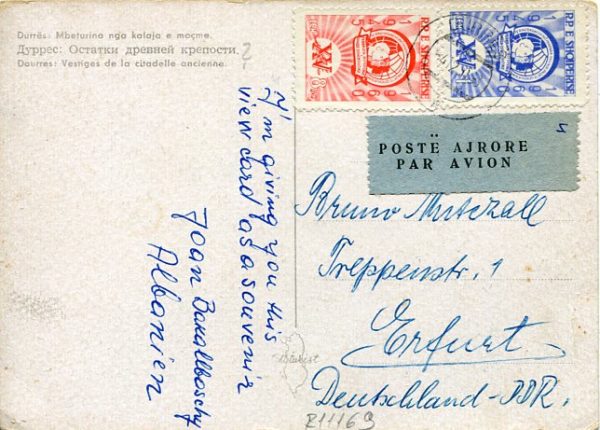 Durrës: Mbeturina nga kalaja e moçme.
Дуррес: Остатки древней крепости.
Dourres: Vestiges de la citadelle ancienne.
?
1945
1960
XV
RP E SHQIPERISE
1945
1960
XV
POSTË AJRORE
PAR AVION
I'm giving you this
view card as a souvenir
Joan Bakallboschy
Albanien
Bruno Mutzall
Treppenstr. 1
Erfurt
Deutschland-DDR.
R11169